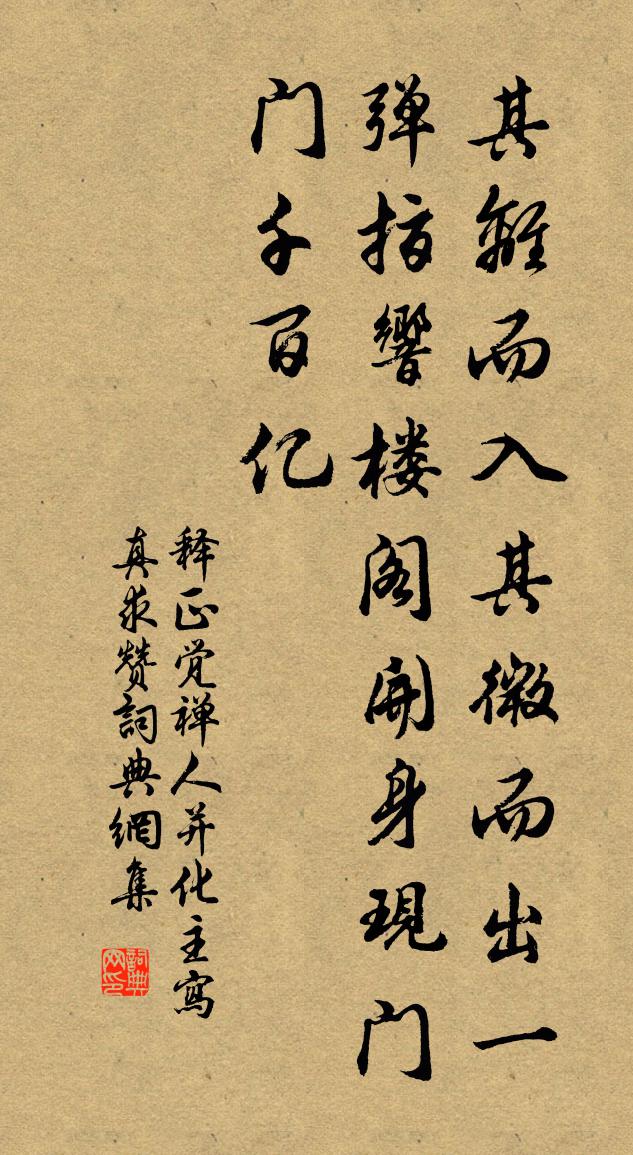 其離而入其微而出一
弹指響楼阁開身現门
门千百亿
释正觉禅人并化主寫
真求赞詞典網集
詞典网印